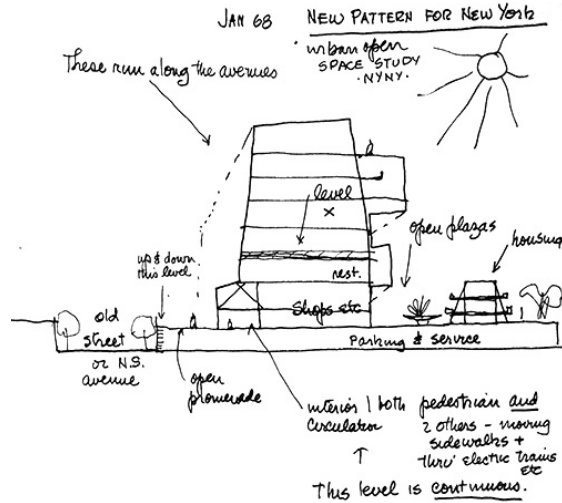 JAN 68 NEW PATTERN FOR NEW YORK
urban open
SPACE STUDY
· NYNY ·
These run along the avenues
level
X
open plazas
housing
up & down
this level
rest.
Shops etc
old
street
or N.S.
avenue
Parking & service
open
promenade
interior | both pedestrian and
circulation
2 others - moving
sidewalks +
thru' electric trains
etc
This level is continuous.